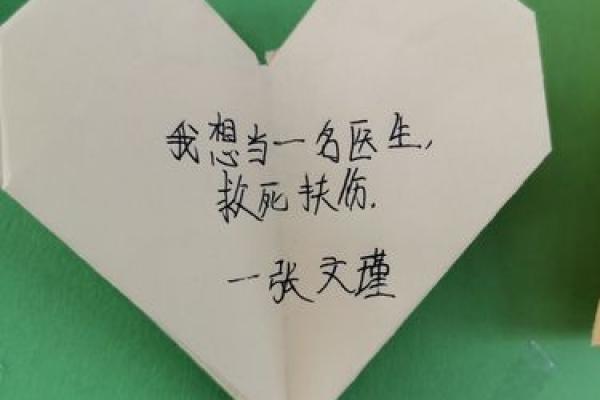 我想当一名医生,
救死扶伤.
一张文瑾